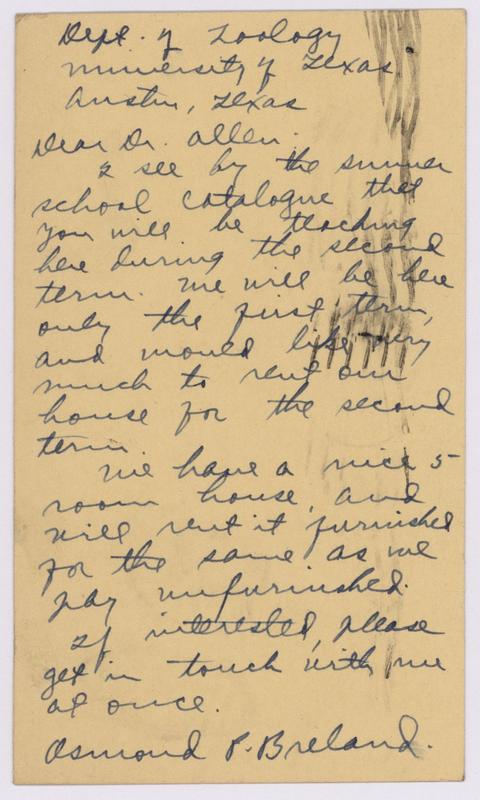 Dept. of Zoology
University of Texas
Austin, Texas
Dear Dr. Allen:
I see by the summer
school catalogue that
you will be teaching
here during the second
term. We will be here
only the first term,
and would like very
much to rent our
house for the second
term.
We have a nice 5
room house, and
will rent it furnished
for the same as we
pay unfurnished.
If interested, please
get in touch with me
at once.
Osmond P. Breland.